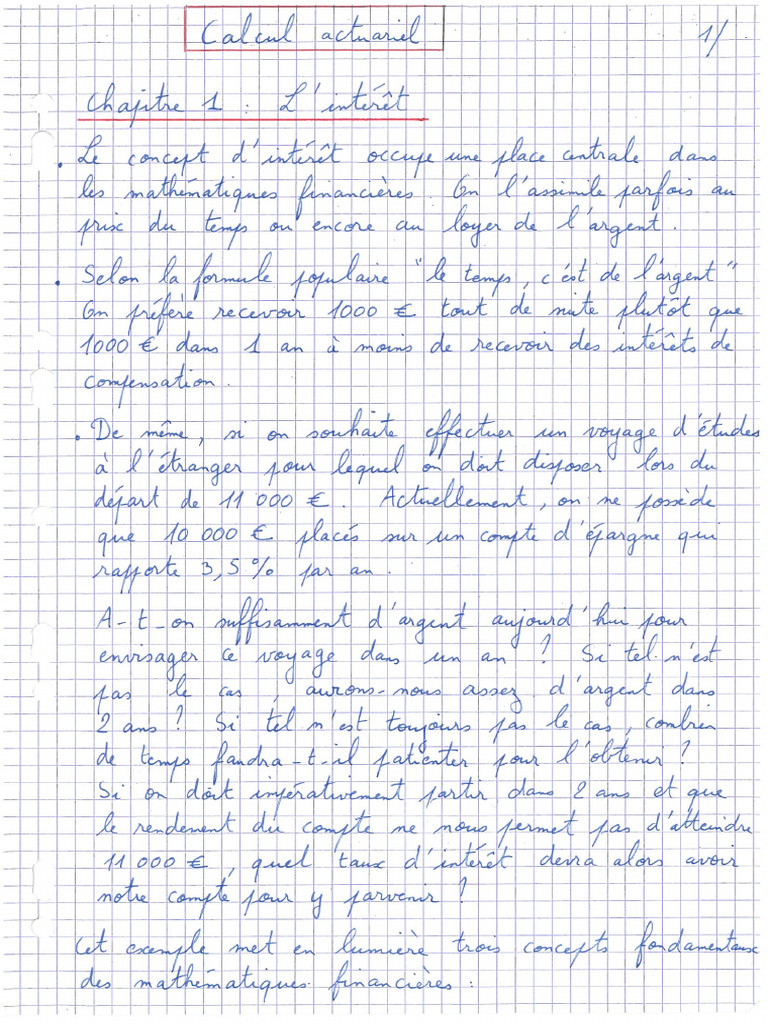 Calcul actuariel
1/
Chapitre 1 : L'intérêt
• Le concept d'intérêt occupe une place centrale dans
les mathématiques financières. On l'assimile parfois au
prix du temps ou encore au loyer de l'argent.
• Selon la formule populaire "le temps, c'est de l'argent"
On préfère recevoir 1000 € tout de suite plutôt que
1000 € dans 1 an à moins de recevoir des intérêts de
compensation.
• De même, si on souhaite effectuer un voyage d'études
à l'étranger pour lequel on doit disposer lors du
départ de 11 000 €. Actuellement, on ne possède
que 10 000 € placés sur un compte d'épargne qui
rapporte 3,5 % par an.
A-t-on suffisamment d'argent aujourd'hui pour
envisager ce voyage dans un an ? Si tel n'est
pas le cas, aurons-nous assez d'argent dans
2 ans ? Si tel n'est toujours pas le cas, combien
de temps faudra-t-il patienter pour l'obtenir ?
Si on doit impérativement partir dans 2 ans et que
le rendement du compte ne nous permet pas d'atteindre
11 000 €, quel taux d'intérêt devra alors avoir
notre compte pour y parvenir ?
Cet exemple met en lumière trois concepts fondamentaux
des mathématiques financières :